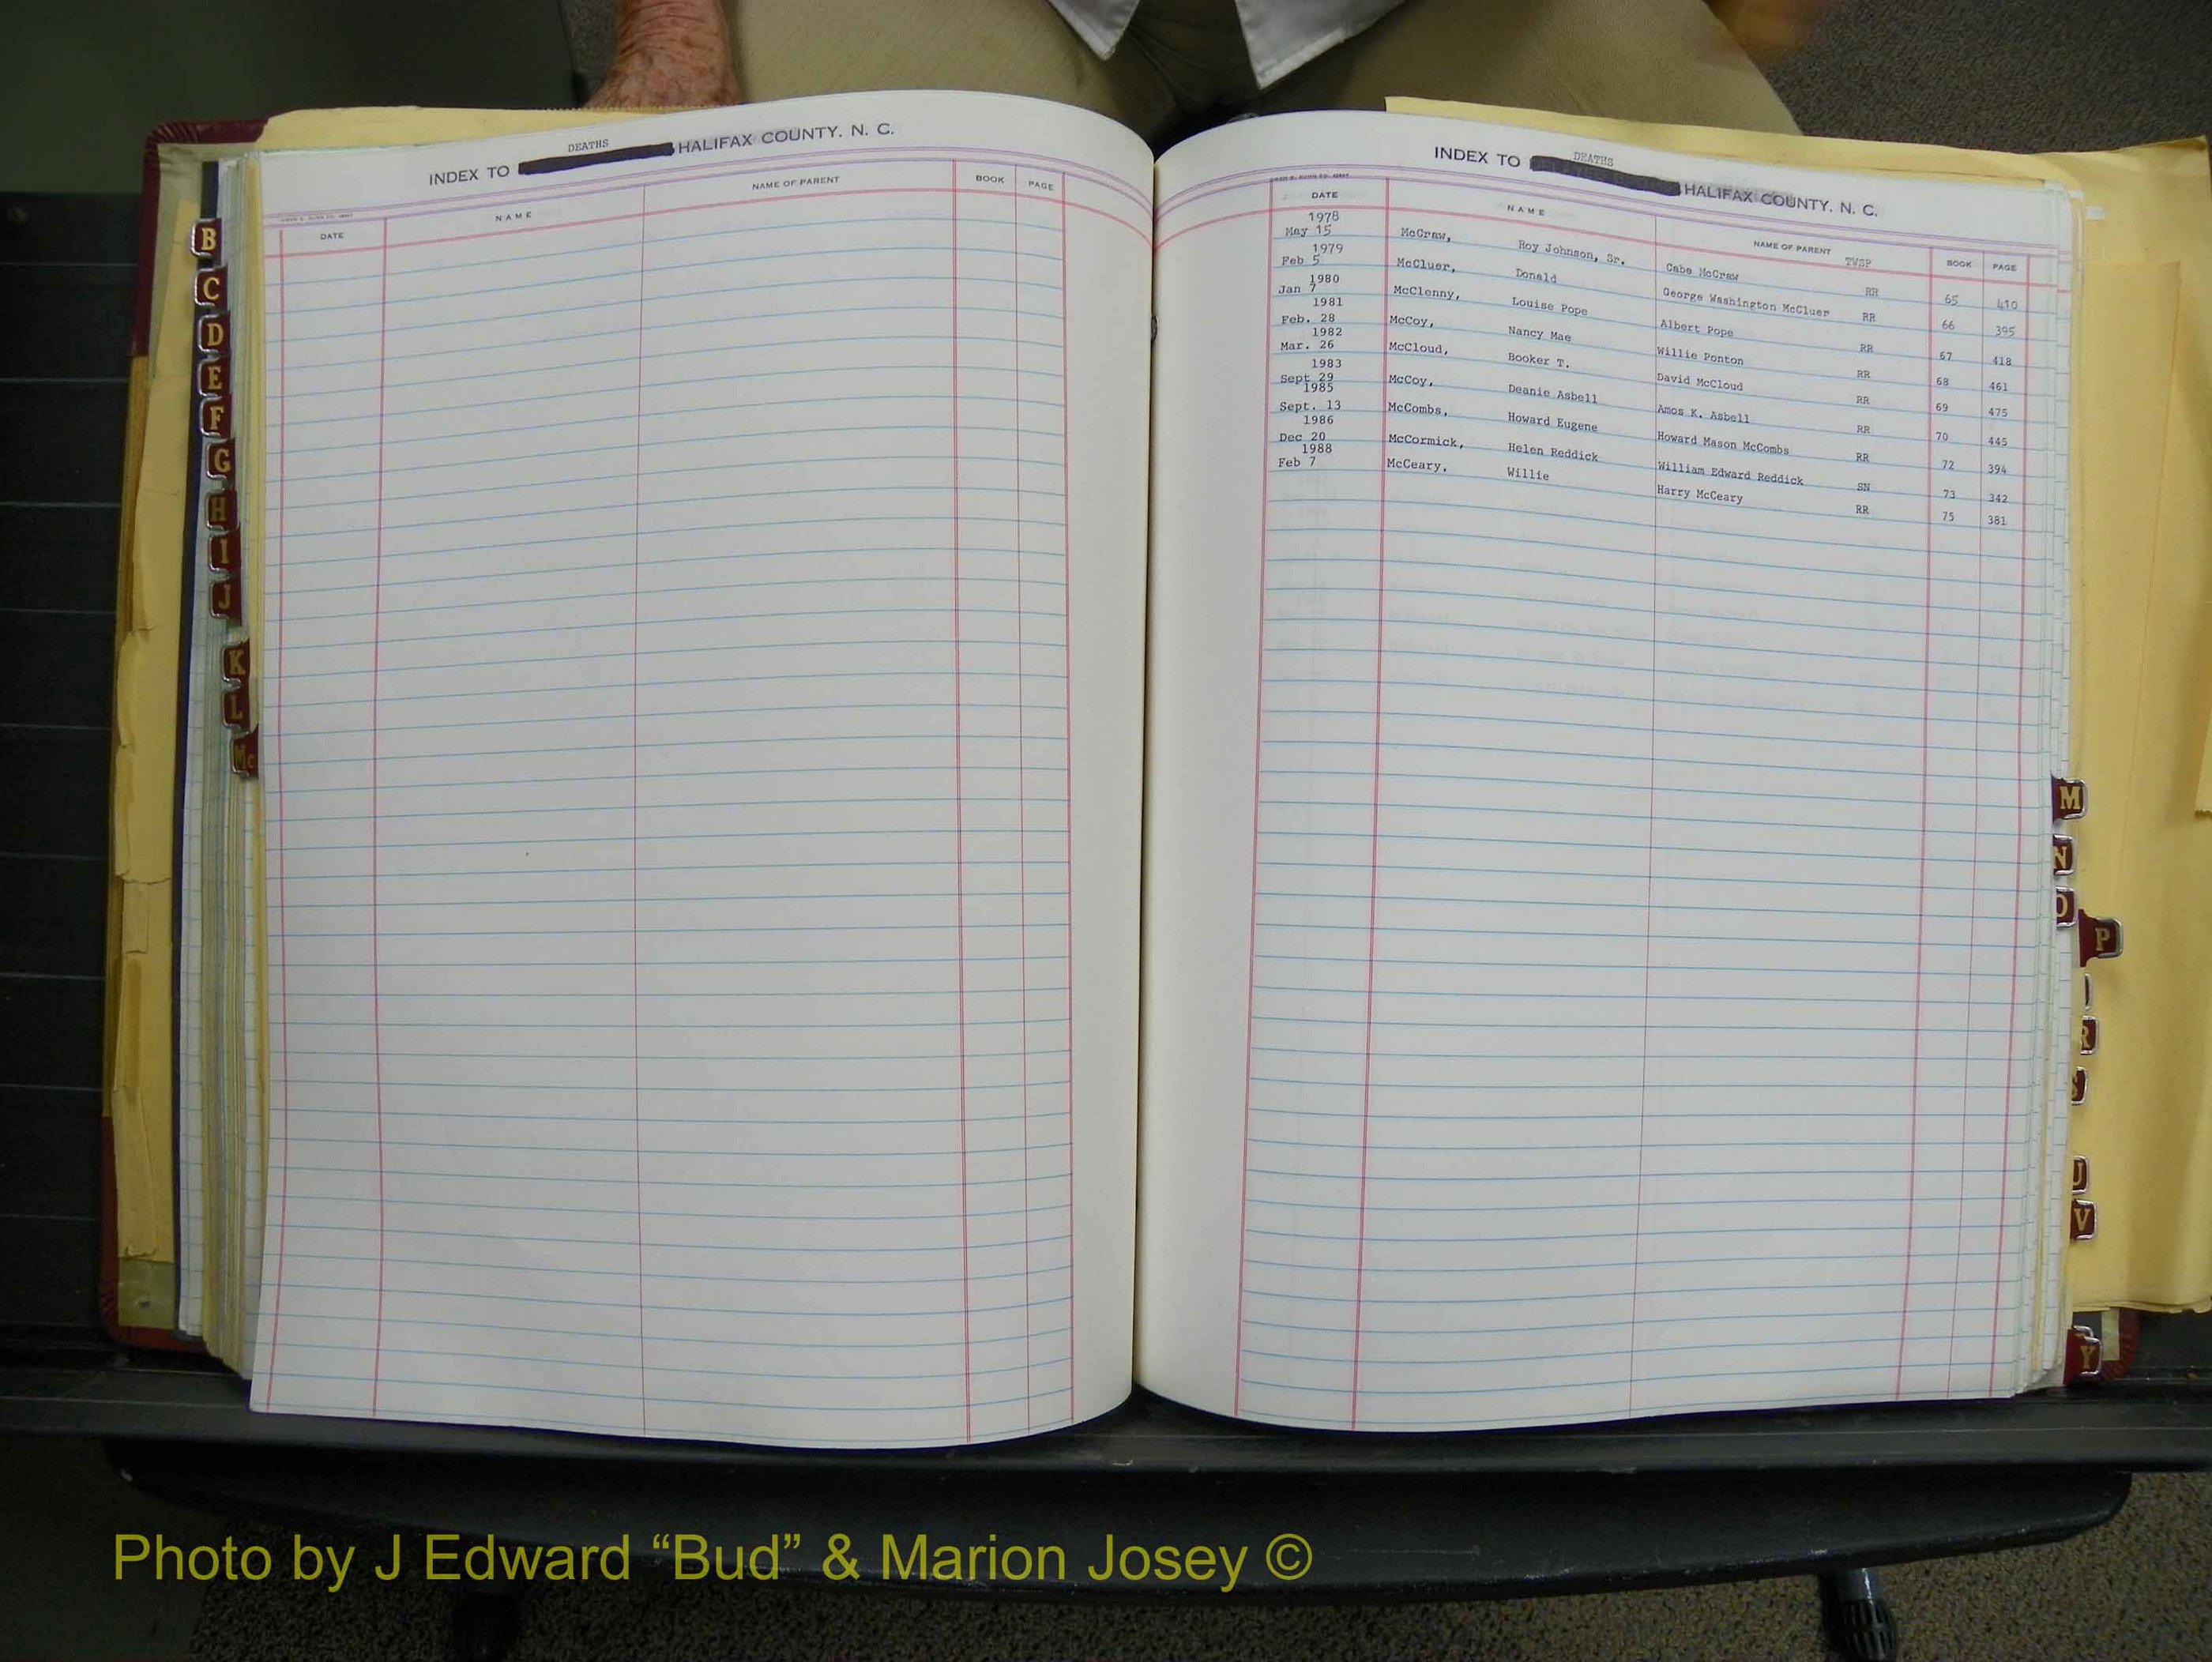 INDEX TO DEATHS HALIFAX COUNTY. N. C.
DATE NAME NAME OF PARENT BOOK PAGE
B
C
D
E
F
G
H
I
J
K
L
Mc
INDEX TO DEATHS HALIFAX COUNTY. N. C.
DATE NAME NAME OF PARENT TWSP BOOK PAGE
1978
May 15 McCraw, Roy Johnson, Sr. Cabe McCraw RR 65 410
1979
Feb 5 McCluer, Donald George Washington McCluer RR 66 395
1980
Jan 7 McClenny, Louise Pope Albert Pope RR 67 418
1981
Feb. 28 McCoy, Nancy Mae Willie Ponton RR 68 461
1982
Mar. 26 McCloud, Booker T. David McCloud RR 69 475
1983
Sept 29 McCoy, Deanie Asbell Amos K. Asbell RR 70 445
1985
Sept. 13 McCombs, Howard Eugene Howard Mason McCombs RR 72 394
1986
Dec 20 McCormick, Helen Reddick William Edward Reddick SN 73 342
1988
Feb 7 McCeary, Willie Harry McCeary RR 75 381
M
N
O
P
R
S
U
V
Y
Photo by J Edward “Bud” & Marion Josey ©